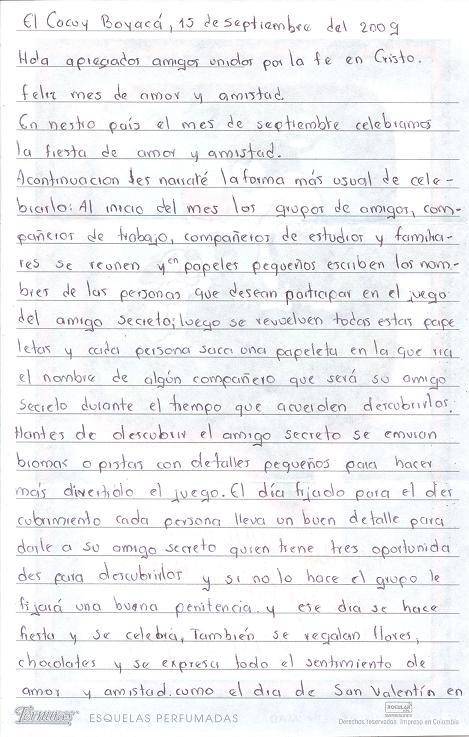 El Cocuy Boyacá, 15 de septiembre del 2009
Hola apreciados amigos unidos por la fe en Cristo.
feliz mes de amor y amistad.
En nestro país el mes de septiembre celebramos
la fiesta de amor y amistad.
Acontinuacion les narraré la forma más usual de cele-
brarlo: Al inicio del mes los grupos de amigos, com-
pañeros de trabajo, compañeros de estudios y familia-
res se reunen y en papeles pequeños escriben los nom-
bres de las personas que desean participar en el juego
del amigo secreto; luego se revuelven todas estas pape
letas y cada persona saca una papeleta en la que irá
el nombre de algún compañero que será su amigo
secreto durante el tiempo que acuerden descubrirlos.
Hantes de descubrir el amigo secreto se envian
bromas o pistas con detalles pequeños para hacer
más divertido el juego. El día fijado para el des
cubrimiento cada persona lleva un buen detalle para
darle a su amigo secreto quien tiene tres oportunida
des para descubrirlos y si no lo hace el grupo le
fijará una buena penitencia. y ese dia se hace
fiesta y se celebra, También se regalan flores,
chocolates y se expresa todo el sentimiento de
amor y amistad. como el dia de San Valentín en
ESQUELAS PERFUMADAS
Derechos reservados Impreso en Colombia